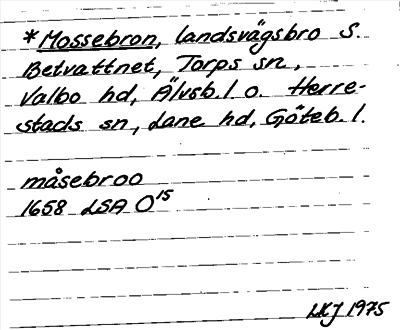 *Mossebron, landsvägsbro S.
Betvattnet, Torps sn,
Valbo hd, Älvsb. l o. Herre-
stads sn, Lane hd, Göteb. l.
måsebroo
1658 LSA O¹⁵
LKJ 1975